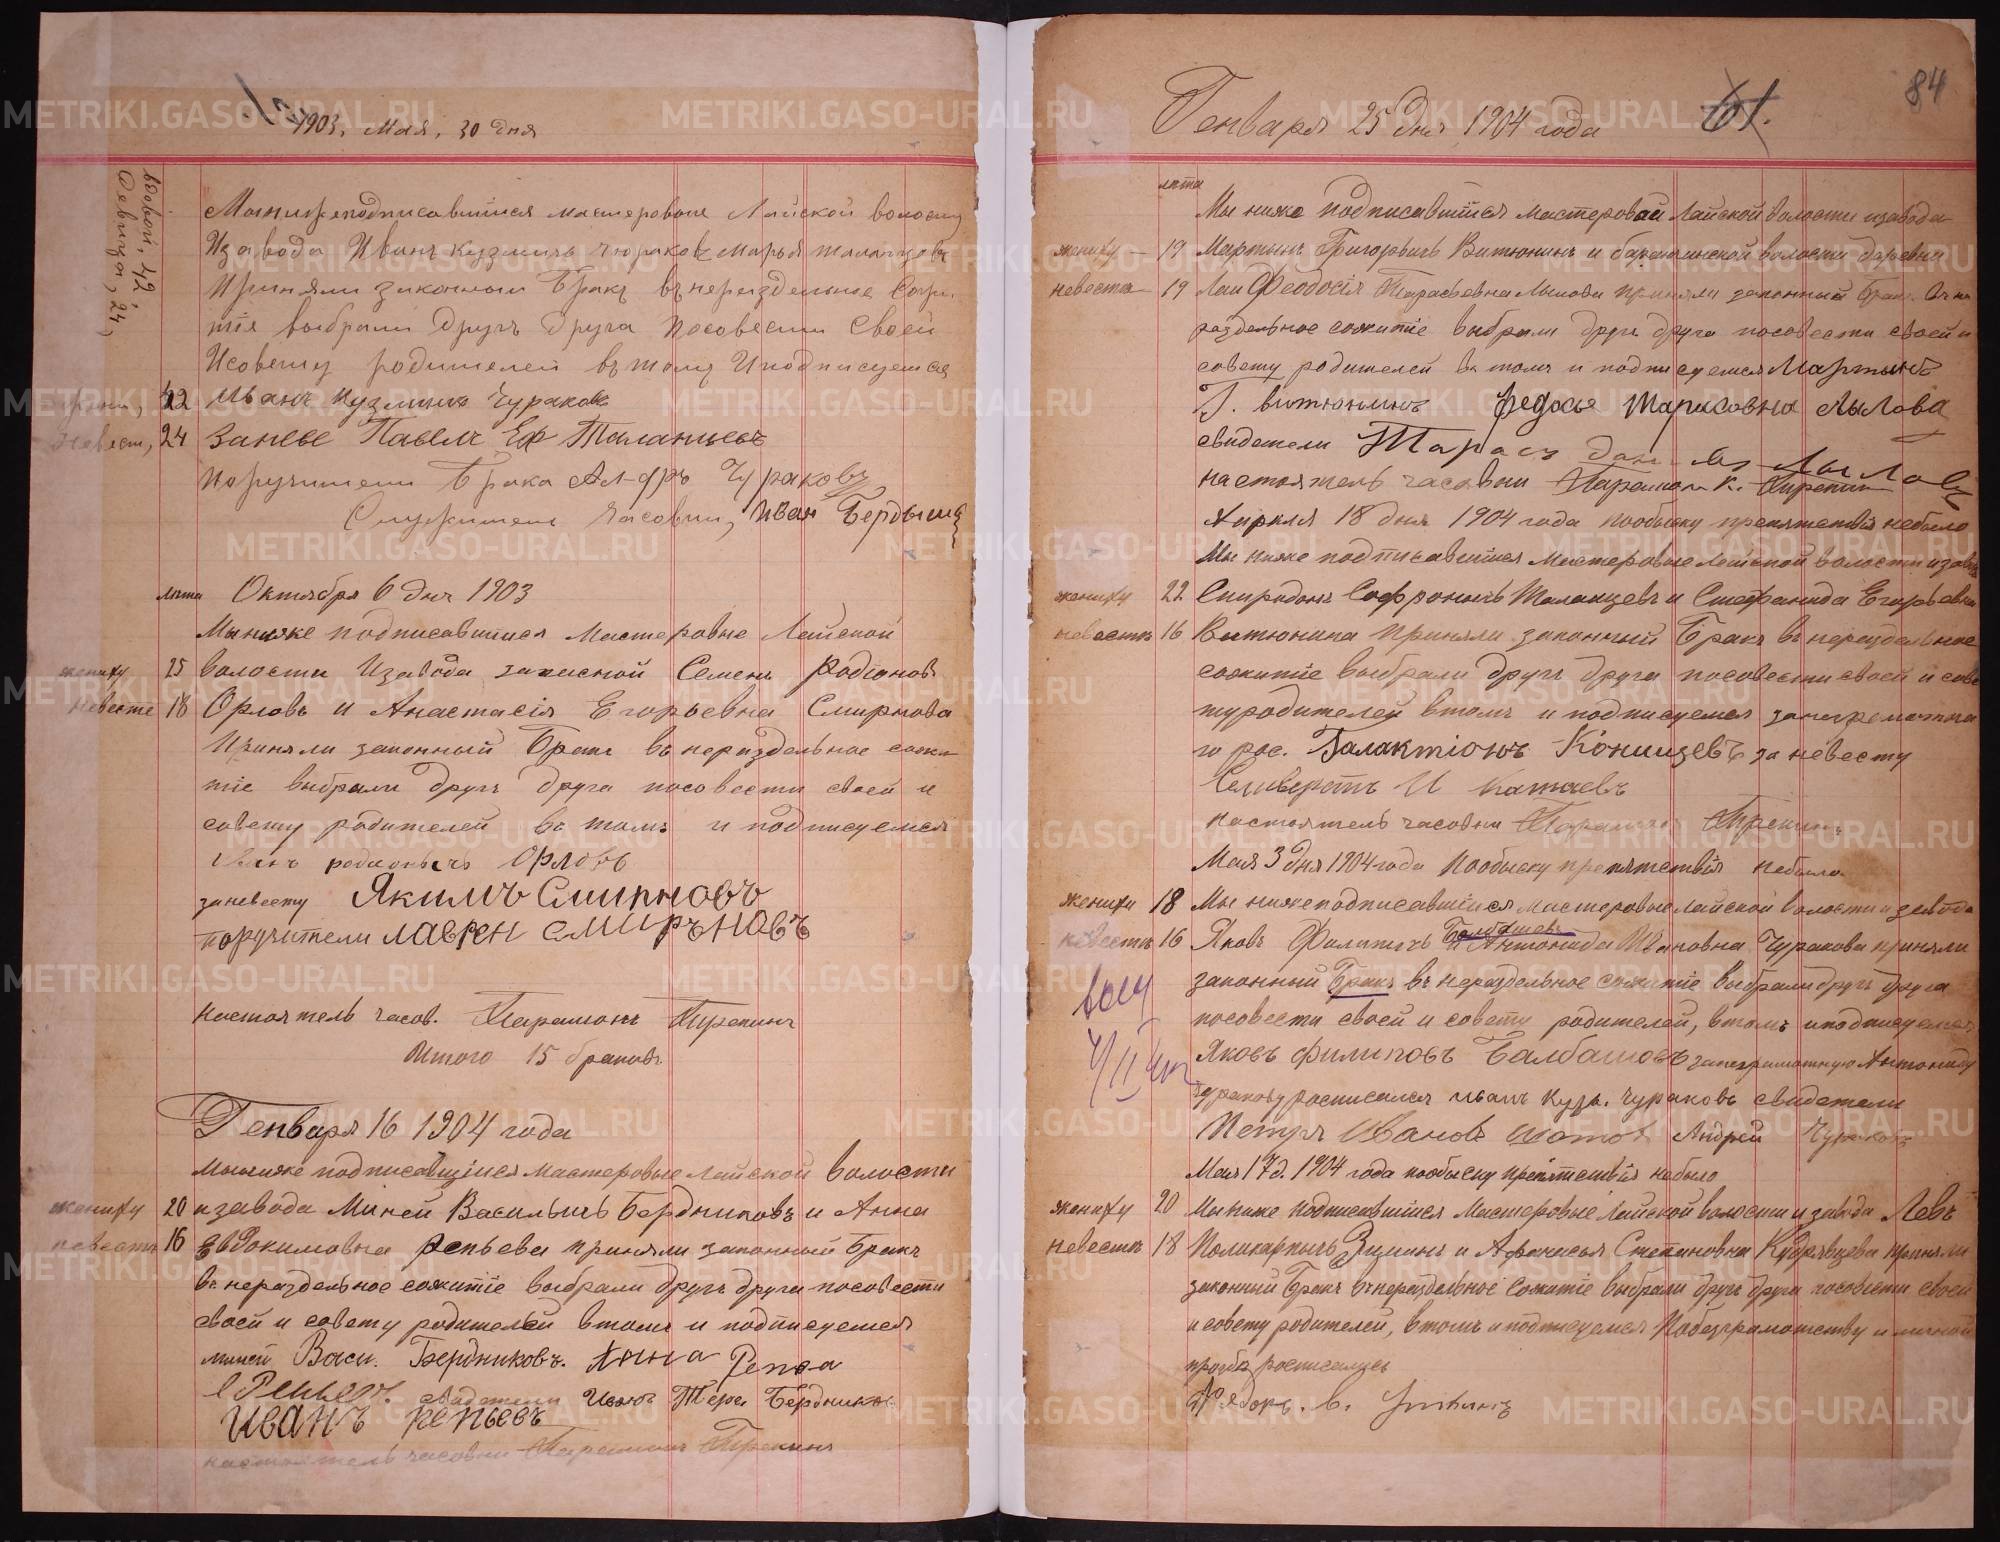 1903, Мая, 30 дня
вдовой, 42,
Девица, 24,
Мынижеподписавшиися мастеровые Лайской волости
Изавода Иванъ Кузмичъ Чураковъ Марья Таланцова
Приняли законный Бракъ внераздельное Сожи
тіе выбрали другъ друга посовести Своей
Исовету родителей втомъ Иподписуемся
42 Иванъ Кузмичъ Чураковъ
Невест, 24 Занеё Павелъ Еф Таланцевъ
Поручители Брака Чураковъ
Служитель Часовни, Иван Бердыш
лета Октября 6 дня 1903
Мыниже подписавшиися Мастеровые Лайской
жениху 25 волости Изавода записной Семенъ Родіоновъ
Невесте 18 Орловъ и Анастасія Егорьевна Смирнова
Приняли законный Бракъ внераздельное сожи
тіе выбрали другъ друга посовести своей и
совету родителей втомъ и подписуемся
родионычъ Орловъ
заневесту Якимъ Смирновъ
поручители лаврен смиръновъ
Настоятель часов. Парамонъ Тирепинъ
Итого 15 браковъ
Генваря 16 1904 года
Мыниже подписавшіися мастеровые Лайской волости
жениху 20 изавода Миней Васильичъ Бердниковъ и Анна
невесте 16 Евдокимовна Репьева приняли законный Бракъ
внераздельное сожитіе выбрали другъ друга посовести
своей и совету родителей втомъ и подписуемся
миней Васи. Бердниковъ. Анна Репева
Репьевъ. свидетели Бердников
Иванъ репьевъ
настоятель часовни Парамонъ Тирепинъ
Генваря 25 дня 1904 года 61. 84
лета
Мы ниже подписавшіися мастеровай Лайской волости изавода
жениху 19 Мартынъ Григорьичъ Витюнинъ и баранчинской волости деревни
невесте 19 Лаи Феодосія Тарасьевна Лылова приняли законный бракъ вне
раздельное сожитіе выбрали другъ друга посовести своей и
совету родителей втомъ и подписуемся Мартынъ
Г. витюнинъ Федосье Тарасовна Лылова
свидетели Тарасъ Дан Лыловъ
настоятель часовни Парамон К. Тирепин
Апреля 18 дня 1904 года пообыску препятствія небыло
Мы ниже подписавшіися Мастеровые Лайской волости изавода
жениху 22 Спиридонъ Софронычъ Таланцевъ и Стефанида Егорьевна
невесте 16 Витюнина Приняли законный Бракъ внераздельное
сожитіе выбрали другъ друга посовести своей и сове
туродителей втомъ и подписуемся занеграмотна
го рос. Галактіонъ Конищевъ за невесту
Селиверстъ И Катаевъ
настоятель часовни Парамон Тирепинъ
Мая 3 дня 1904 года Пообыску препятствія небыло
жениху 18 Мы нижеподписавшіися мастеровые Лайской волости изавода
невесте 16 Яковъ Филипычъ Балбашевъ и Антонида Ивановна Чуракова приняли
законный Бракъ внераздельное сожитіе выбрали другъ друга
посовести своей и совету родителей, втомъ иподписуемся
Яковъ Филиповъ Балбашовъ занеграмотную Антониду
Чуракову росписался иванъ Кузь. Чураковъ свидетели
Петръ Ивановъ Андрей Чураковъ
Мая 17д. 1904 года пообыску препятствія небыло
жениху 20 Мы ниже подписавшіися Мастеровые Лайской волости и завода Левъ
невесте 18 Поликарпычъ Зиминъ и Афанасья Степановна Кудрявцева приняли
законный Бракъ внераздельное Сожитіе выбрали другъ друга посовести своей
и совету родителей, втомъ и подписуемся Побезграмотству и личной
прозбе росписался
Федоръ. В.
METRIKI.GASO-URAL.RU